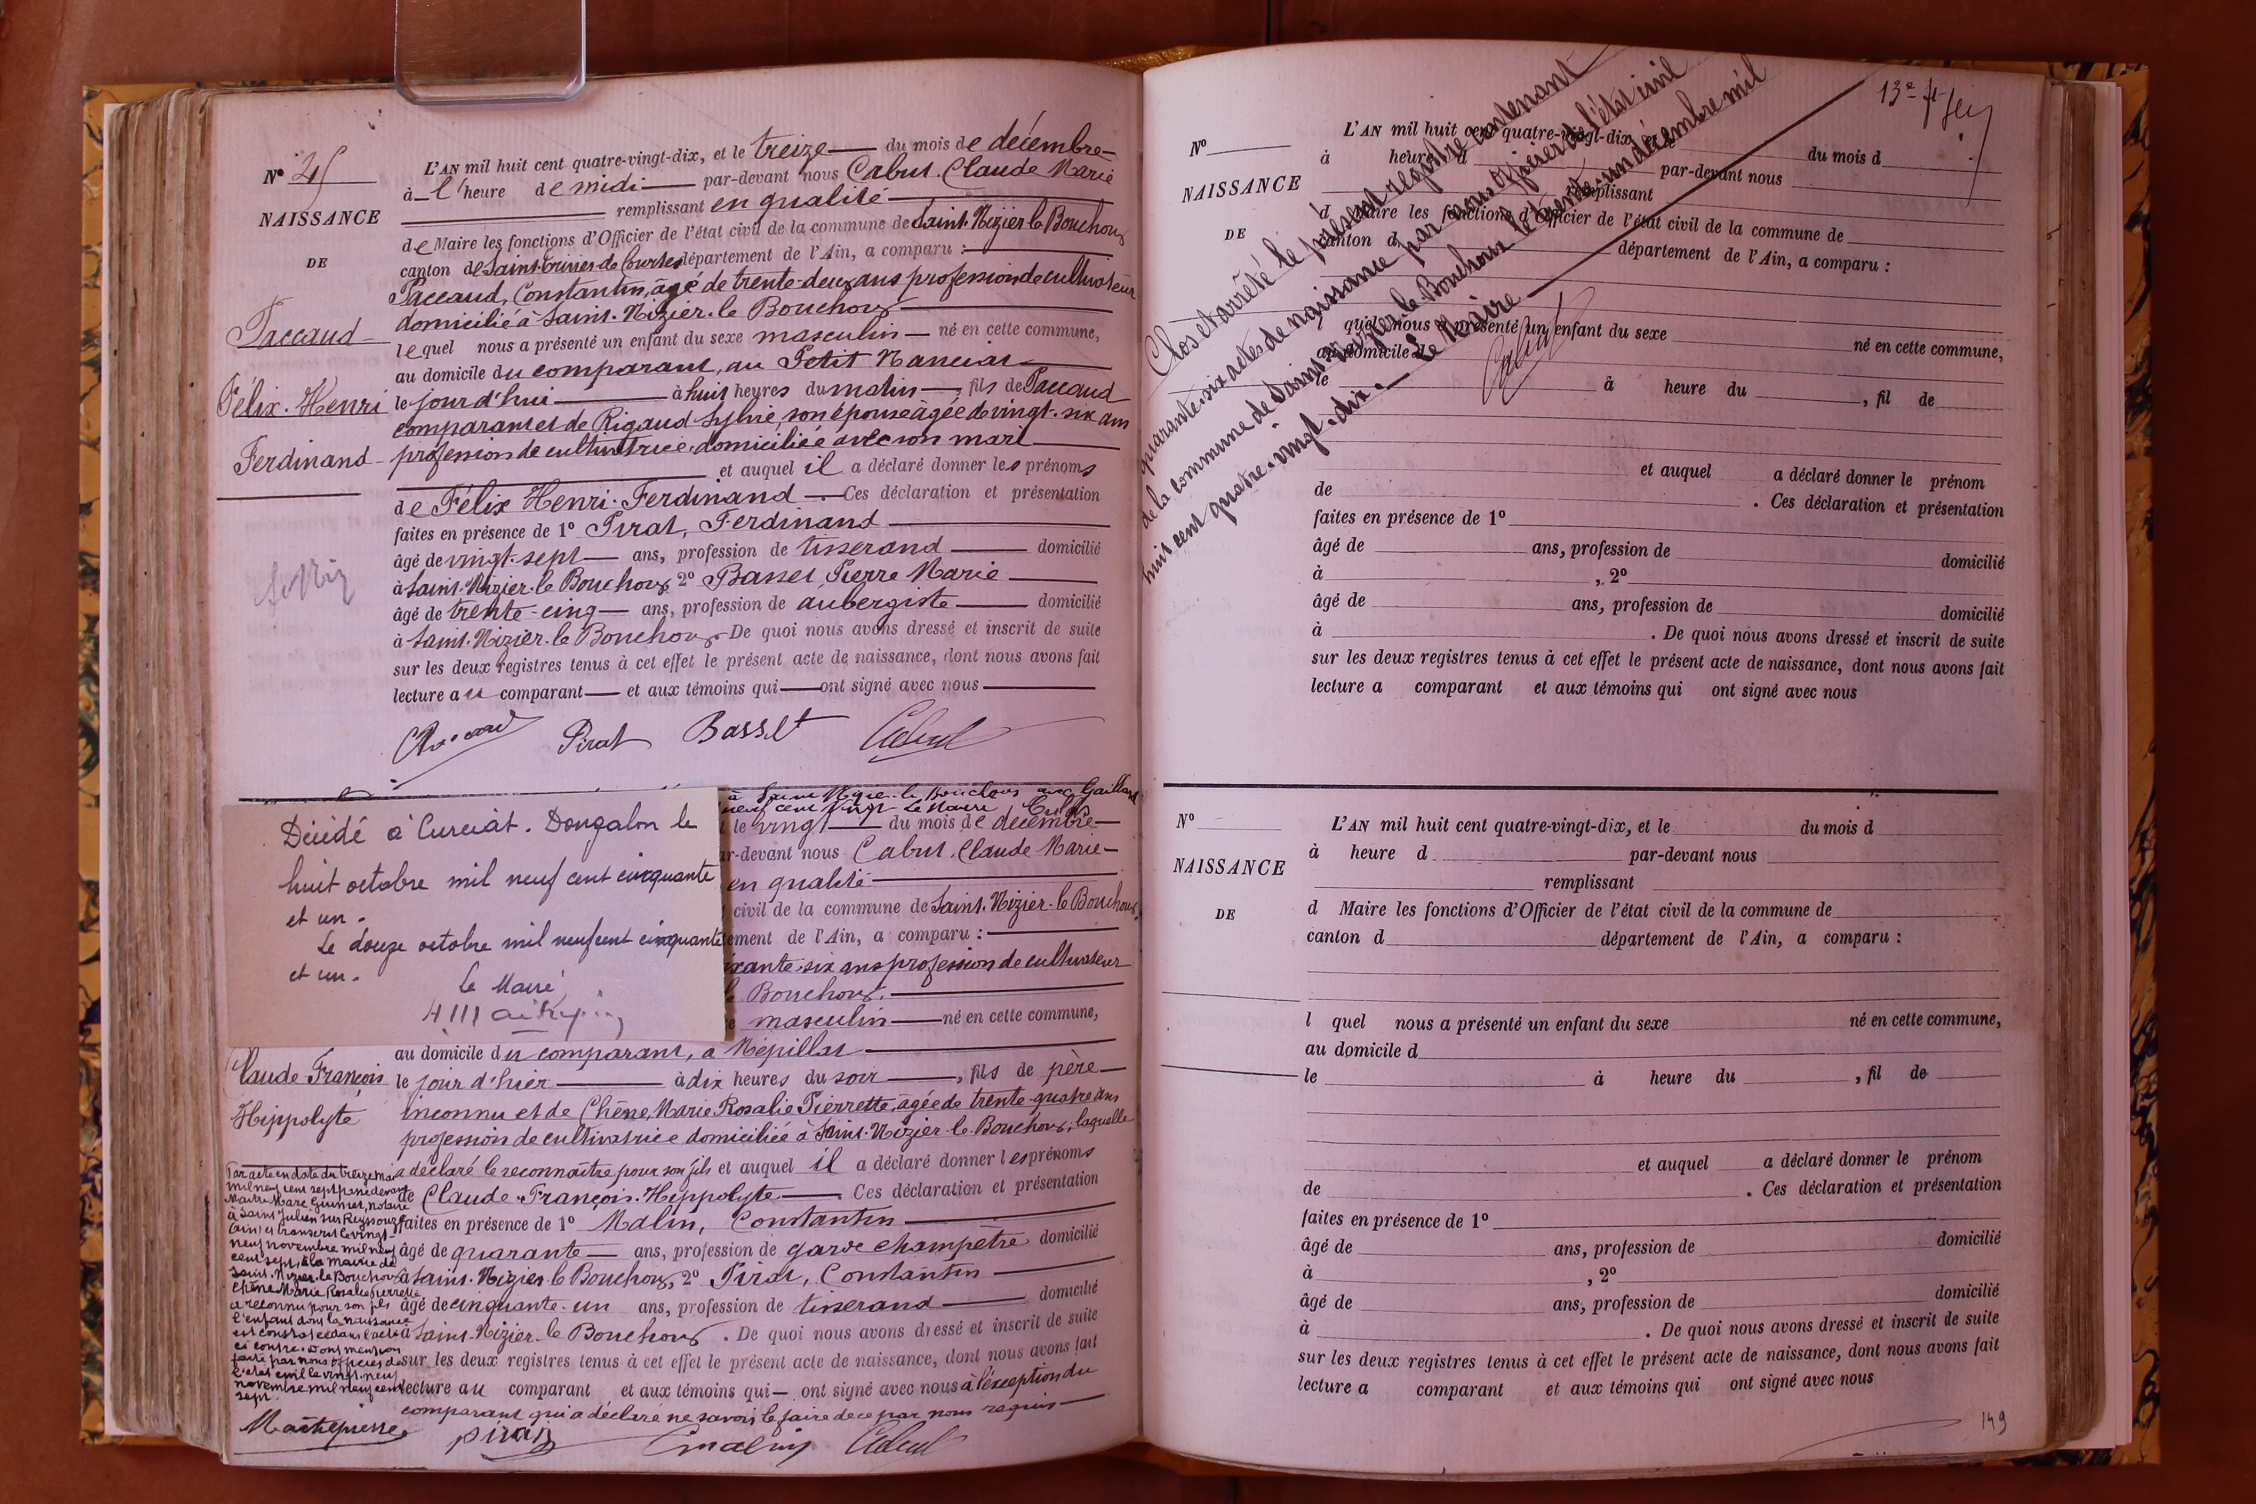 N° 45
NAISSANCE
DE
Paccaud
Félix. Henri
Ferdinand
L'AN mil huit cent quatre-vingt-dix, et le treize du mois de décembre
à l'heure de midi par-devant nous Cabut. Claude Marie
remplissant en qualité
de Maire les fonctions d'Officier de l'état civil de la commune de Saint-Nizier le Bouchoux
canton de Saint-Trivier de Courtes département de l'Ain, a comparu :
Paccaud, Constantin, âgé de trente-deux ans profession de cultivateur
domicilié à Saint-Nizier-le Bouchoux
lequel nous a présenté un enfant du sexe masculin né en cette commune,
au domicile du comparant, au Petit Nanciat
le jour d'hui à huit heures du matin, fils de Paccaud
comparant et de Rigaud Sylvie, son épouse âgée de vingt-six ans
profession de cultivatrice domiciliée avec son mari
et auquel il a déclaré donner les prénoms
de Félix Henri. Ferdinand. Ces déclaration et présentation
faites en présence de 1° Pirat, Ferdinand
âgé de vingt-sept ans, profession de tisserand domicilié
à Saint-Nizier-le Bouchoux, 2° Basset, Pierre Marie
âgé de trente-cinq ans, profession de aubergiste domicilié
à Saint-Nizier-le Bouchoux. De quoi nous avons dressé et inscrit de suite
sur les deux registres tenus à cet effet le présent acte de naissance, dont nous avons fait
lecture au comparant et aux témoins qui ont signé avec nous
Pirat Basset Cabut
Décédé à Curciat-Dongalon le
huit octobre mil neuf cent cinquante
et un.
Le douze octobre mil neuf cent cinquante
et un.
Le Maire
à Saint Nizier-le Bouchoux avec Gaillard
neuf cent vingt Le Maire,
le vingt du mois de décembre
par-devant nous Cabut, Claude Marie
en qualité
civil de la commune de Saint-Nizier-le Bouchoux,
ement de l'Ain, a comparu :
ixante-six ans profession de cultivateur
le Bouchoux.
masculin né en cette commune,
au domicile du comparant, à Népillat
Claude François
Hippolyte
le jour d'hier à dix heures du soir, fils de père
inconnu et de Chêne, Marie Rosalie Pierrette, âgée de trente-quatre ans
profession de cultivatrice domiciliée à Saint-Nizier-le Bouchoux, laquelle
a déclaré le reconnaître pour son fils et auquel il a déclaré donner les prénoms
de Claude François-Hippolyte. Ces déclaration et présentation
faites en présence de 1° Malin, Constantin
âgé de quarante ans, profession de garde champêtre domicilié
à Saint-Nizier-le Bouchoux, 2° Pirat, Constantin
âgé de cinquante-un ans, profession de tisserand domicilié
à Saint-Nizier-le Bouchoux. De quoi nous avons dressé et inscrit de suite
sur les deux registres tenus à cet effet le présent acte de naissance, dont nous avons fait
lecture au comparant et aux témoins qui ont signé avec nous à l'exception du
comparant qui a déclaré ne savoir le faire de ce par nous requis
Par acte en date du treize mai
mil neuf cent sept passé devant
Maître Marc Guinet, notaire
à Saint Julien sur Reyssouze
(Ain) et transcrit le vingt
neuf novembre mil neuf
cent sept, à la mairie de
Saint-Nizier-le Bouchoux
Chêne Marie Rosalie Pierrette
a reconnu pour son fils
l'enfant dont la naissance
est constatée dans l'acte
ci contre. Dont mention
faite par nous officier de
l'état civil le vingt-neuf
novembre mil neuf cent
sept.
pirat Cmalin Cabut
13e
Clos et arrêté le présent registre contenant
quarante-six actes de naissance par nous officier de l'état civil
de la commune de Saint-Nizier-le-Bouchoux le trente-un décembre mil
huit cent quatre-vingt-dix. Le Maire
Cabut
N°
NAISSANCE
DE
L'AN mil huit cent quatre-vingt-dix, et le du mois d
à heure d par-devant nous
remplissant
d Maire les fonctions d'Officier de l'état civil de la commune de
canton d département de l'Ain, a comparu :
l quel nous a présenté un enfant du sexe né en cette commune,
au domicile d
le à heure du , fil de
et auquel a déclaré donner le prénom
de . Ces déclaration et présentation
faites en présence de 1°
âgé de ans, profession de domicilié
à , 2°
âgé de ans, profession de domicilié
à . De quoi nous avons dressé et inscrit de suite
sur les deux registres tenus à cet effet le présent acte de naissance, dont nous avons fait
lecture a comparant et aux témoins qui ont signé avec nous
N°
NAISSANCE
DE
L'AN mil huit cent quatre-vingt-dix, et le du mois d
à heure d par-devant nous
remplissant
d Maire les fonctions d'Officier de l'état civil de la commune de
canton d département de l'Ain, a comparu :
l quel nous a présenté un enfant du sexe né en cette commune,
au domicile d
le à heure du , fil de
et auquel a déclaré donner le prénom
de . Ces déclaration et présentation
faites en présence de 1°
âgé de ans, profession de domicilié
à , 2°
âgé de ans, profession de domicilié
à . De quoi nous avons dressé et inscrit de suite
sur les deux registres tenus à cet effet le présent acte de naissance, dont nous avons fait
lecture a comparant et aux témoins qui ont signé avec nous
149